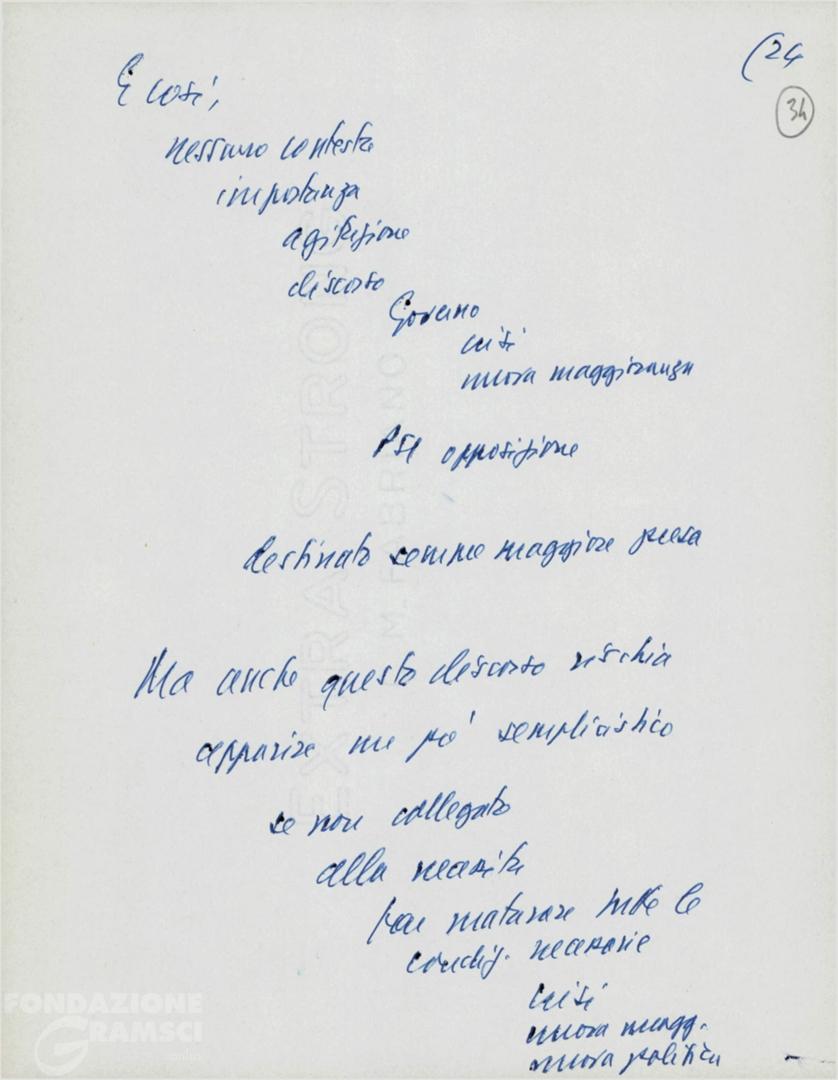 (24
34
E così,
nessuno contesta
importanza
agitazione
discorso
Governo
crisi
nuova maggioranza
PSI opposizione
destinato sempre maggiore presa
Ma anche questo discorso rischia
apparire un po' semplicistico
se non collegato
alla necessità
far maturare tutte le
condiz. necessarie
crisi
nuova magg.
nuova politica
EXTRA STRONG
M. FABRIANO
FONDAZIONE
GRAMSCI
onlus